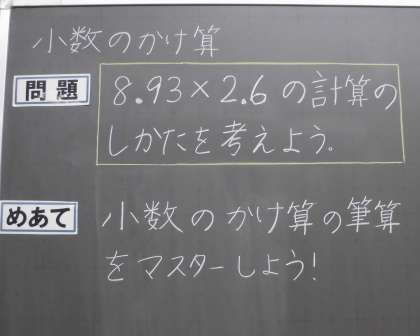 小数のかけ算
問題 8.93×2.6の計算の
しかたを考えよう。
めあて 小数のかけ算の筆算
をマスターしよう!